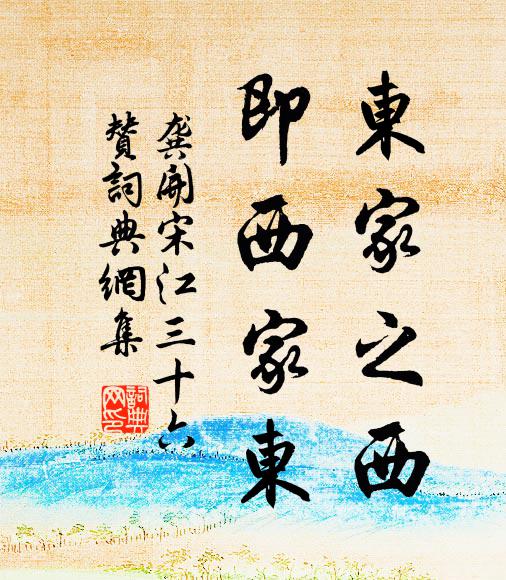 東家之西
即西家東
龔開宋江三十六
贊詞典網集
詞典
网印